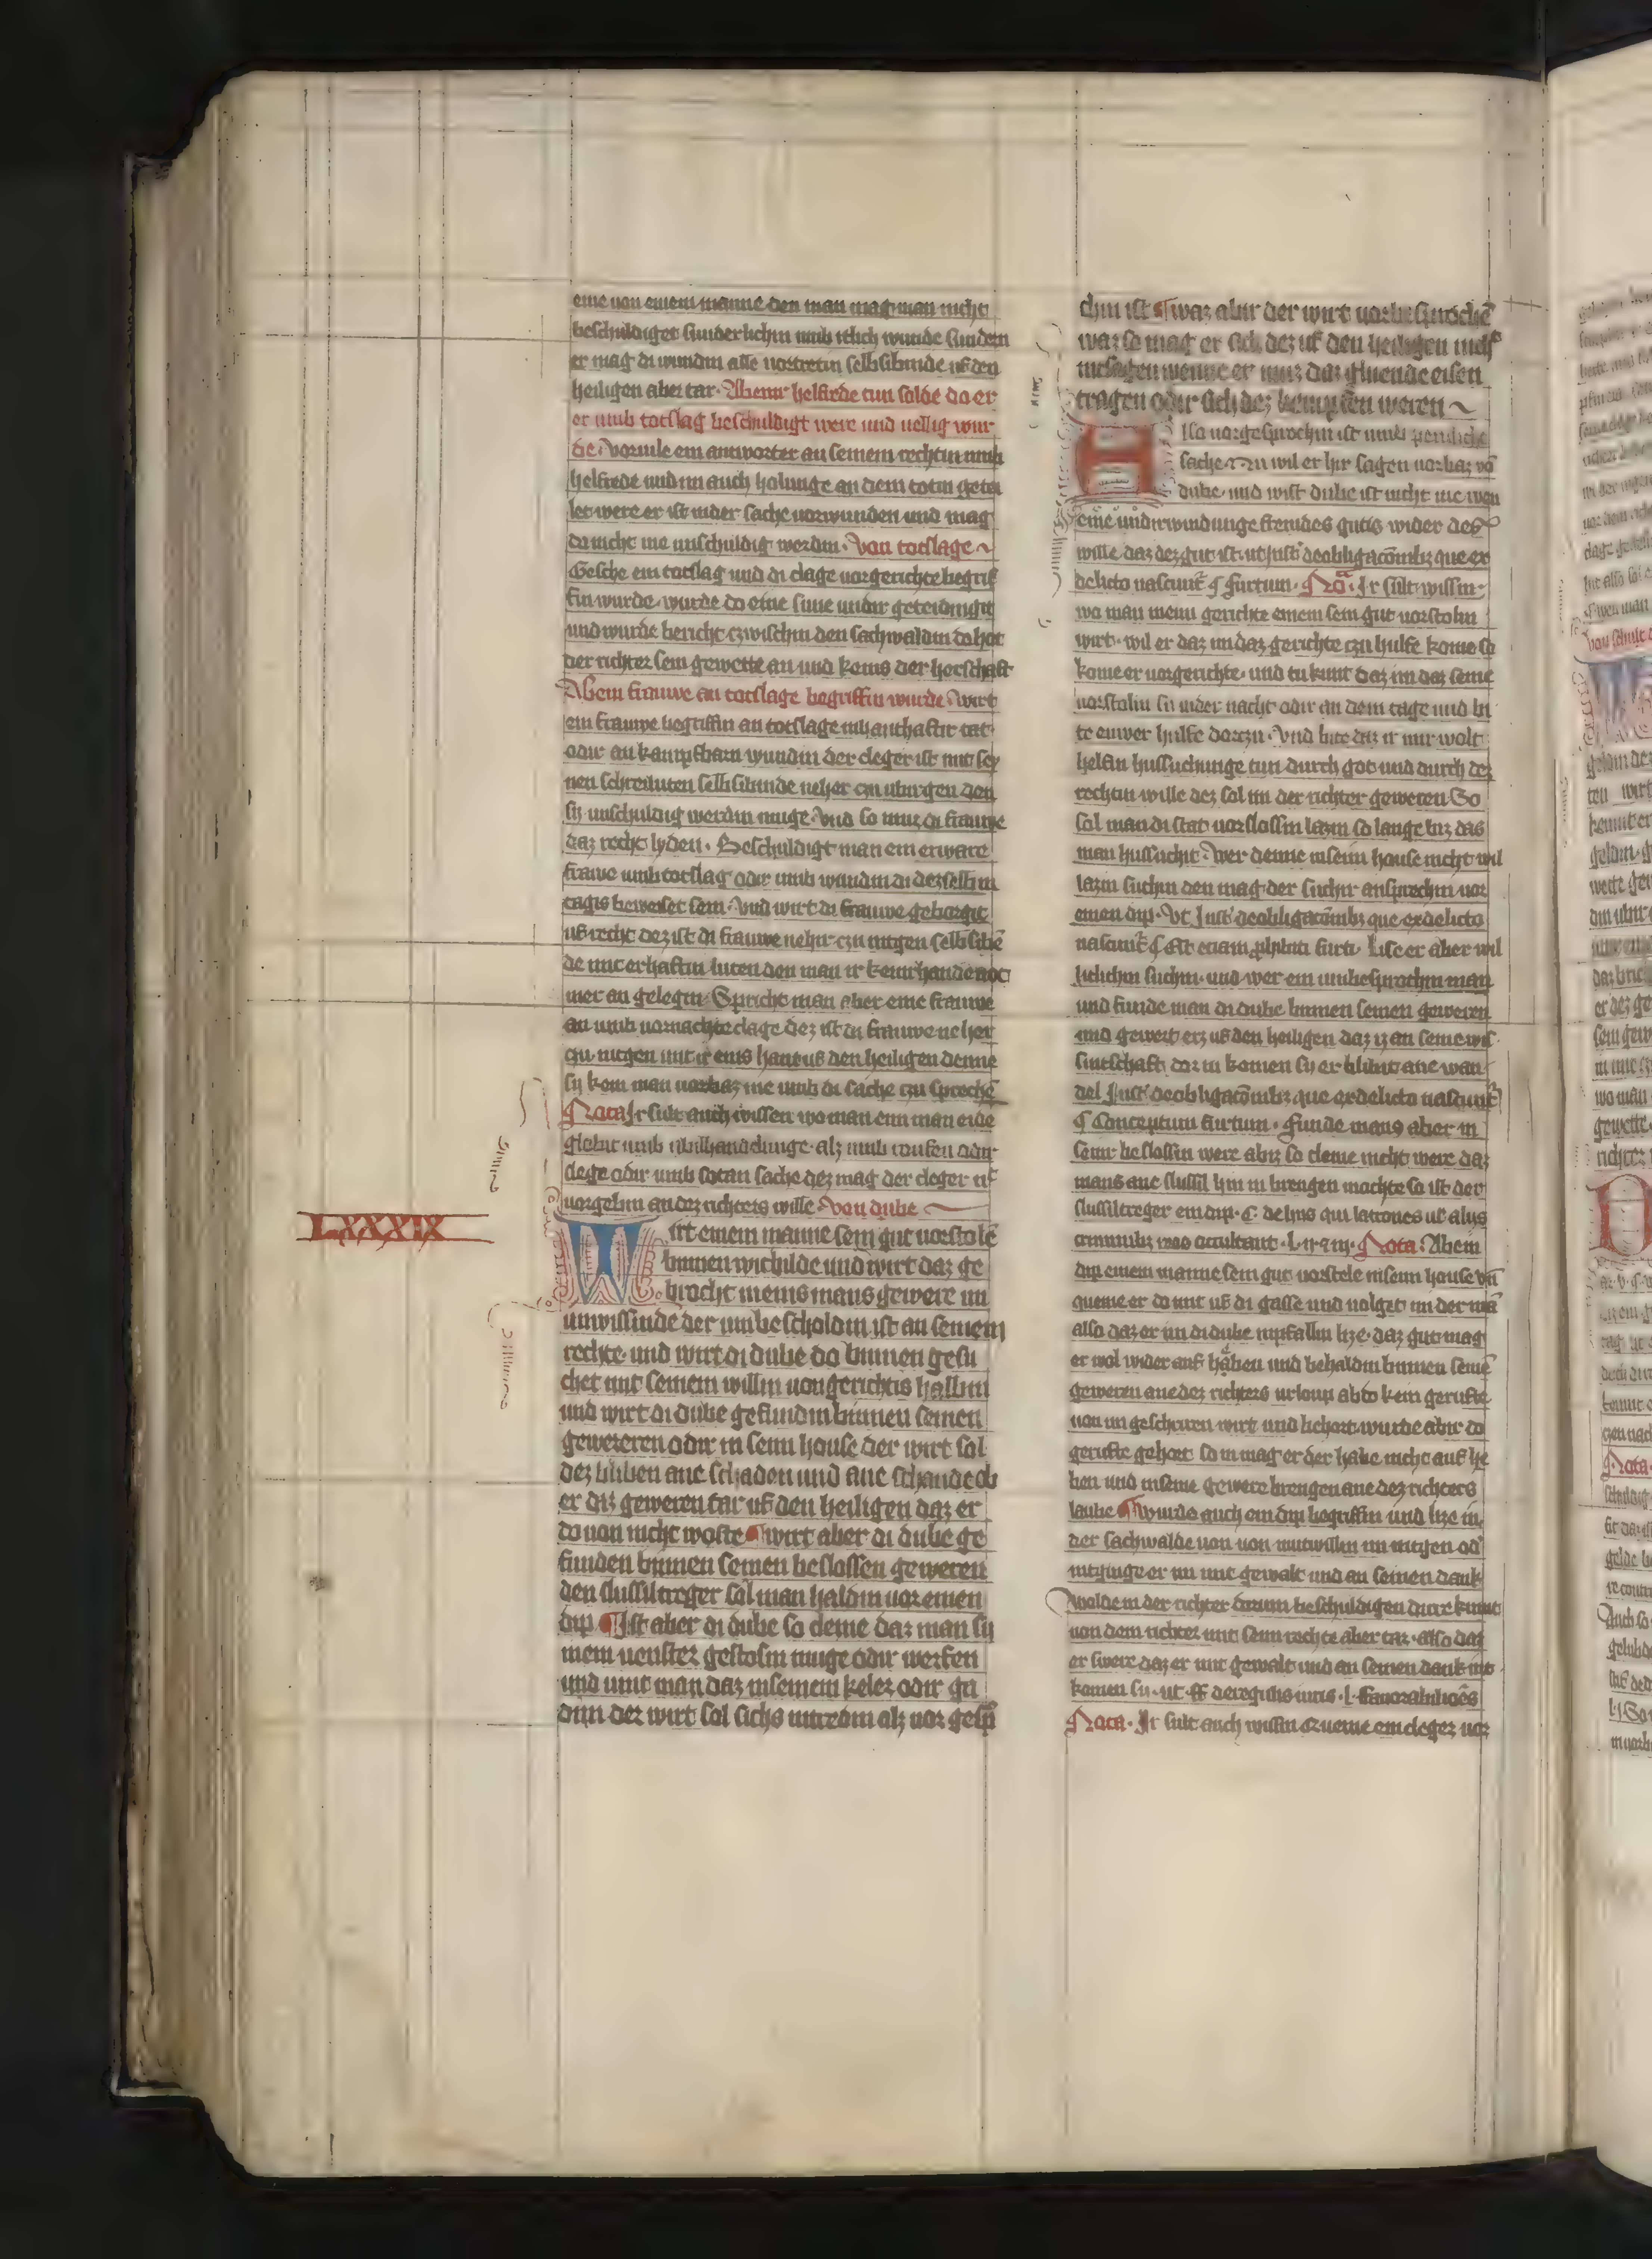 eine von einem manne den man mag man nicht
beschuldiget sunderlichin umb itlich wunde sundern
er mag di wundin alle vortretin selbsibinde uf den
heiligen aber tar. Abeinir helferde tun solde do er
er umb totslag beschuldigt were und vellig wur
de. vorvile ein antworter an seinem rechtin umb
helferde und im auch holunge an dem totin getei
let were er ist inder sache vorwunden und mag
do nicht me unschuldig werdin. Von totslage
Gesche ein totslag und di clage vorgerichte begrif
fin wurde. wurde do eine sune undir geteidingit
und wurde bericht czwischin den sachwaldin do hot
der richter sein gewette an und keins der herschaft
Abein frauwe an totslage begriffin wurde. wirt
ein frauwe begriffin an totslage in hanthaftir tat
odir an kampfbarn wundin der cleger ist mit sey
nen schreiluten selbsibinde neher czu ubirgen den
sy unschuldig werdin muge. Und so muz di frauwe
daz recht lyden. Beschuldigt man ein erware
frawe umb totslag odir umb wundin di dezselbin
tagis beweiset sein. Und wirt di frauwe geborgit
uf recht dez ist di frauwe nehir czu intgen selbsibē
de mit erhaftin luten den man ir keinirhande not
mer an gelegin. Spricht man aber eine frauwe
an umb vornachte clage dez ist di frauwe neher
czu intgen mit ir eins hant uf den heiligen denne
sy kom man vorbaz me umb di sache czu sprechē
Nota Ir sult auch wissen wo man eim man eide
globit umb ubilhandelunge. alz umb roufen odir
slege odir umb sotan sache dez mag der cleger uf
vorgebin an dez richters wille. Von dube
LXXXIX
Wirt einem manne sein gut vorstolē
binnen wichilde und wirt daz ge
brocht in eins mans gewere im
unwissinde der umbescholdin ist an seinem
rechte. und wirt di dube do binnen gesu
chet mit seinem willin von gerichtis halbin
und wirt di dube gefundin binnen seinen
gewereren odir in seim house der wirt sal
dez bliben ane schaden und ane schande ob
er diz geweren tar uf den heiligen daz er
do von nicht woste ¶ wirt aber di dube ge
funden binnen seinen beslossen geweren
den slussiltreger sol man haldin vor einen
dip ¶ Ist aber di dube so cleine daz man sy
in ein venster gestosin muge odir werfen
und vint man daz in seinem keler odir ga
din der wirt sol sichs intredin alz vor gesp̄
chin ist ¶ waz abir der wirt vorbesprochē
waz so mag er sich dez uf den heiligen nich
intsagen wenne er muz daz gluende eisen
tragen odir sich dez kempfen weren
Hlso vorgesprochin ist umb penliche
sache Nu wil er hir sagen vorbaz vō
dube. und wist dube ist nicht me wen
eine undirwindunge fremdes gutis wider des
wille daz dez gut ist. ut Inst' de obligacōnibz que ex
delicto nascunt' ¶ furtum. Nōa. Ir sult wissin.
wo man wenn gerichte einem sein gut vorstolin
wirt. wil er daz im daz gerichte czu hulfe kome so
kome er vorgerichte. und tu kunt daz im daz seine
vorstolin sy inder nacht odir an dem tage und bi
te euwer hulfe dorczu. Und bite daz ir mir wolt
helfin hussuchunge tun durch got und durch dez
rechtin wille dez sol im der richter geweren So
sol man di stat vorslossin lazin so lange biz das
man hussucht. Wer denne in seim house nicht wil
lazin suchin den mag der suchir ansprechin vor
einen dip. Vt Inst' de obligacōnibz que ex delicto
nascunt' ¶ Est eciam prohibiti furti. List er aber wil
liclichin suchin. und wer ein umbesprochin man
und funde man di dube binnen seinen geweren
und gewert erz uf den heiligen daz iz an seine wis
sintschaft dor in komen sy er blibit ane wan
del Inst' de obligacōnibz que ex delicto nascunt'
¶ Conceptum furtum. Funde mans aber in
seinir beslossin were abiz so cleine nicht were daz
mans ane slussil hin in brengen mochte so ist der
slussiltreger ein dip. C. de hiis qui latrones vel aliis
criminibz reos occultant. l. ij. Nota. Abein
dip einem manne sein gut vorstele in seim house vñ
queme er do mit uf di gasse und volget im der mā
also daz er im di dube inpfallin lize. daz gut mag
er wol wider auf haben und behaldin binnen seinē
geweren ane dez richters urloup ab do kein gerufte
von im geschriren wirt und lichort wurde abir do
gerufte gehort so in mag er der habe nicht auf he
ben und in seine gewere brengen ane dez richters
laube ¶ wurde auch ein dip begriffin und lize in
der sachwalde von von mutwillin im intgen od'
intginge er im mit gewalt und an seinen dank
wolde in der richter dorum beschuldigen dirre kumt
von dem richter mit seim rechte aber tar. also daz
er swere daz er mit gewalt und an seinen dank int
komen sy. ut ff de regulis iuris. l. fauorabiliōes
Nota. Ir sult auch wissin czu eine ein cleger vor